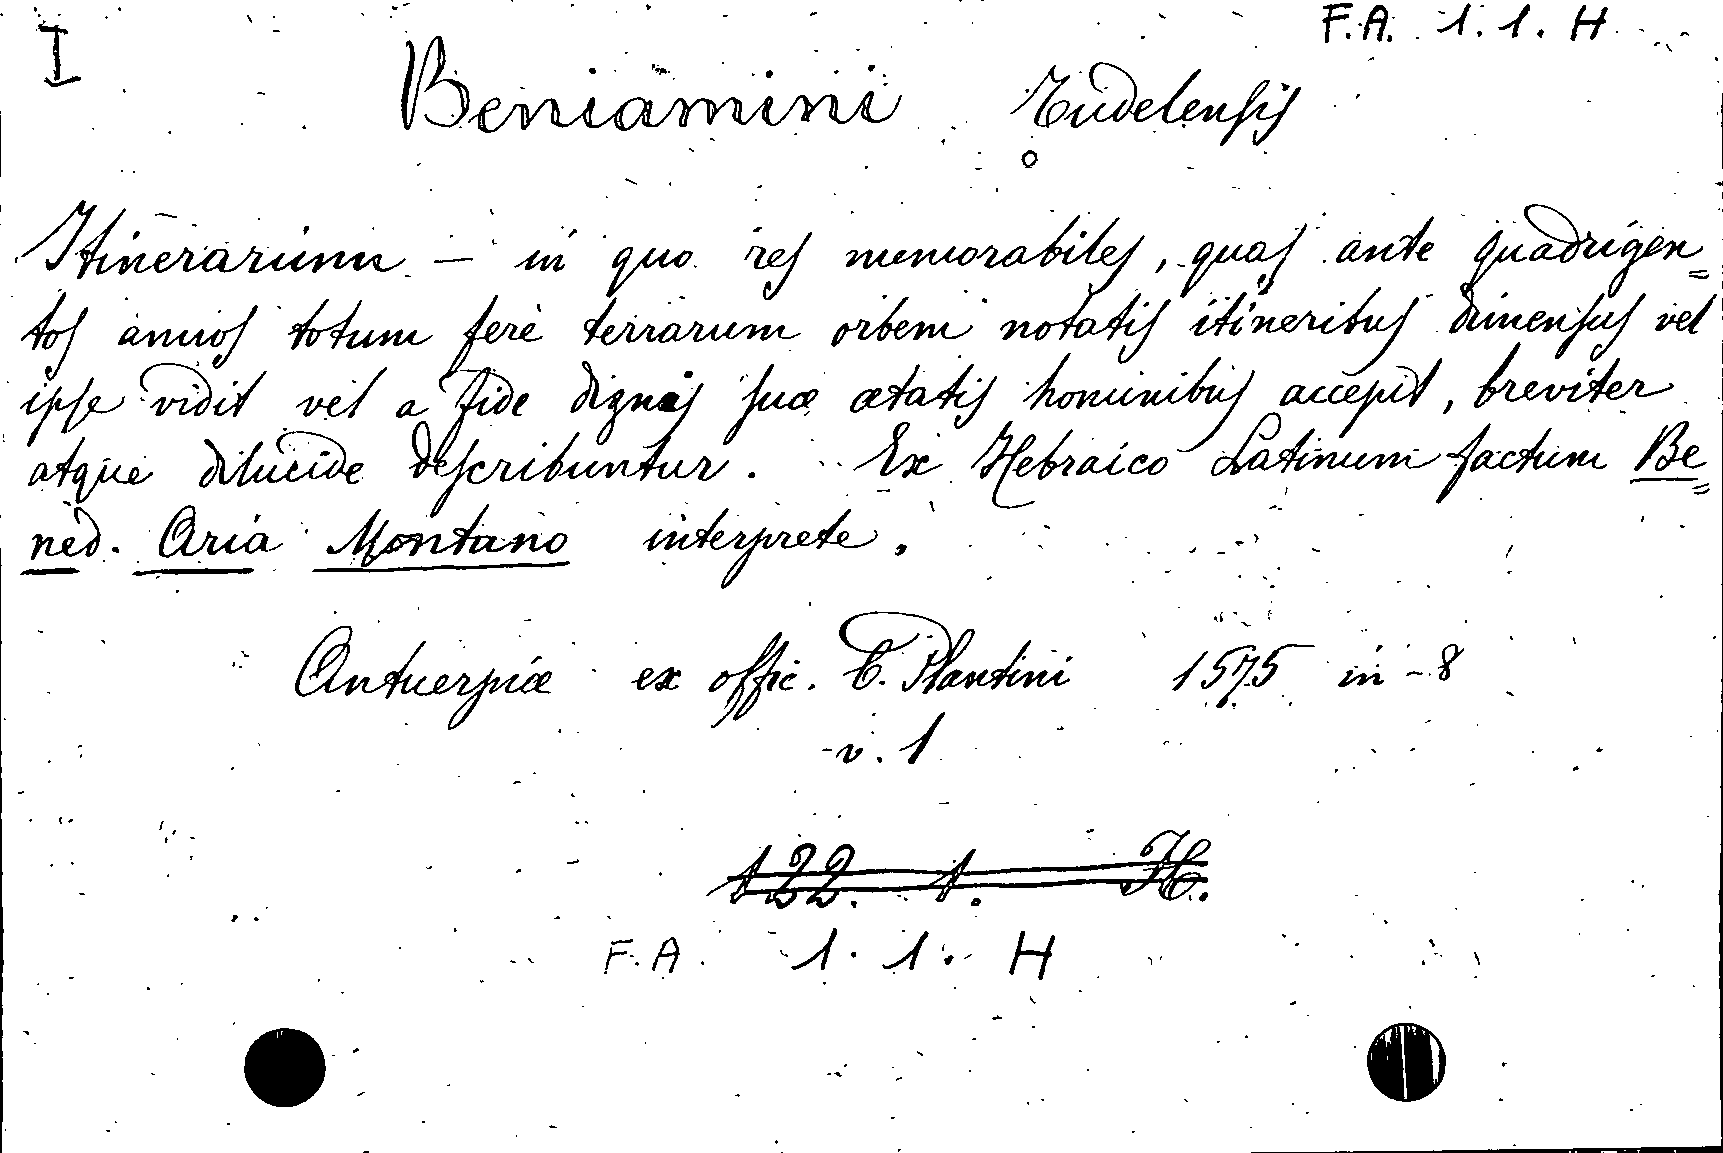 I
F.A. 1.1.H
Beniamini Tudelensis
Itinerarium – in quo res memorabiles, quas ante quadrigen=
tos annos totum ferè terrarum orbem notatis itineribus dimensus vel
ipse vidit vel a fide dignis suæ ætatis hominibus accepit, breviter
atque dilucide describuntur. Ex Hebraico Latinum factum Be=
ned. Aria Montano interprete.
Antuerpiæ ex offic. C. Plantini 1575 in-8
v. 1
122. 1. H.
F.A. 1. 1. H